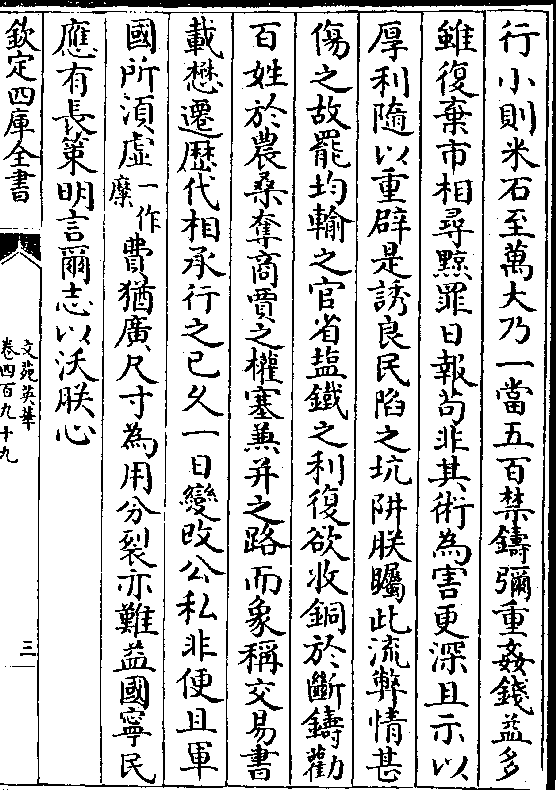 行小則米石至萬大乃一當五百禁鑄彌重姦錢益多
雖復棄市相尋黥罪日報茍非其術為害更深且示以
厚利隨以重辟是誘良民陷之坑阱朕矚此流弊情甚
傷之故罷均輸之官省塩鐵之利復欲收銅於斷鑄勸
百姓於農桑奪商賈之權塞兼并之路而象稱交易書
載懋遷歴代相承行之已久一日變改公私非便且軍
國所須虛一作糜費猶廣尺寸為用分裂亦難益國寧民
應有長策明言爾志以沃朕心
欽定四庫全書
文苑英華
卷四百九十九
三